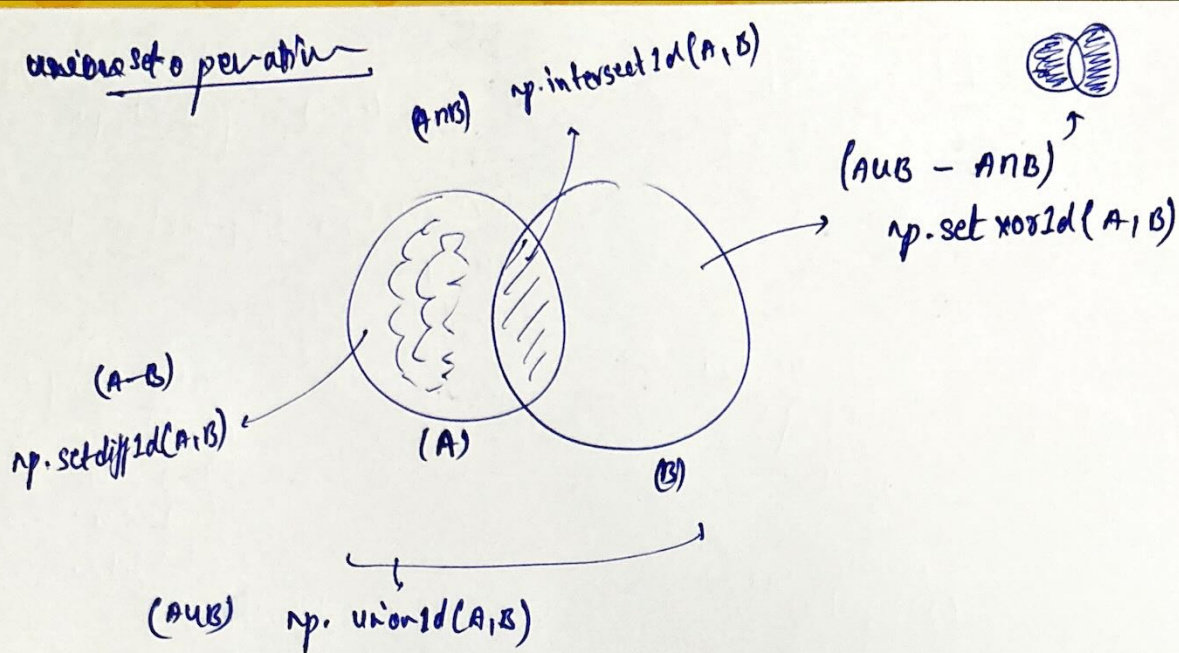 set operation
(A∩B) np.intersect1d(A,B)
(A∪B - A∩B)
np.setxor1d(A,B)
(A-B)
np.setdiff1d(A,B)
(A)
(B)
(A∪B) np.union1d(A,B)